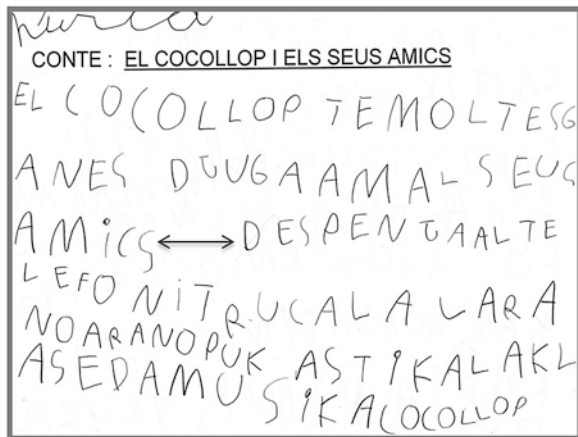 CONTE : EL COCOLLOP I ELS SEUS AMICS
EL COCOLLOP TE MOLTES G
ANES DJUGA AMAL SEUS
AMICS ↔ DESPENJAAL TE
LEFONITRUCALA LARA
NOARANOPUK ASTIKALAKL
ASEDAMUSIKACOCOLLOP